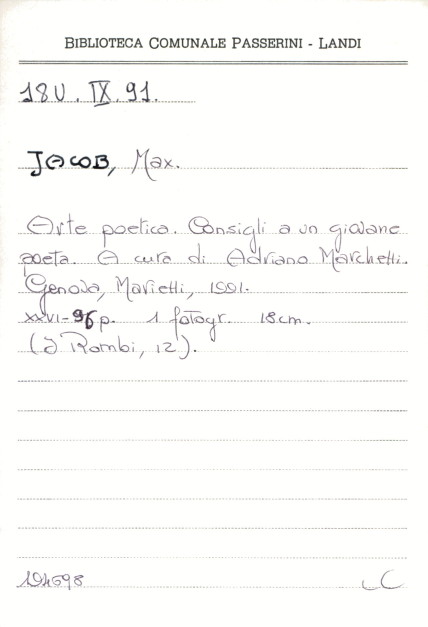 BIBLIOTECA COMUNALE PASSERINI - LANDI
18U. IX. 91.
JACOB, Max.
Arte poetica. Consigli a un giovane
poeta. A cura di Adriano Marchetti.
Genova, Marietti, 1991.
XXVI-96 p. 1 fotogr. 18cm.
(I Rombi, 12).
194698 LC